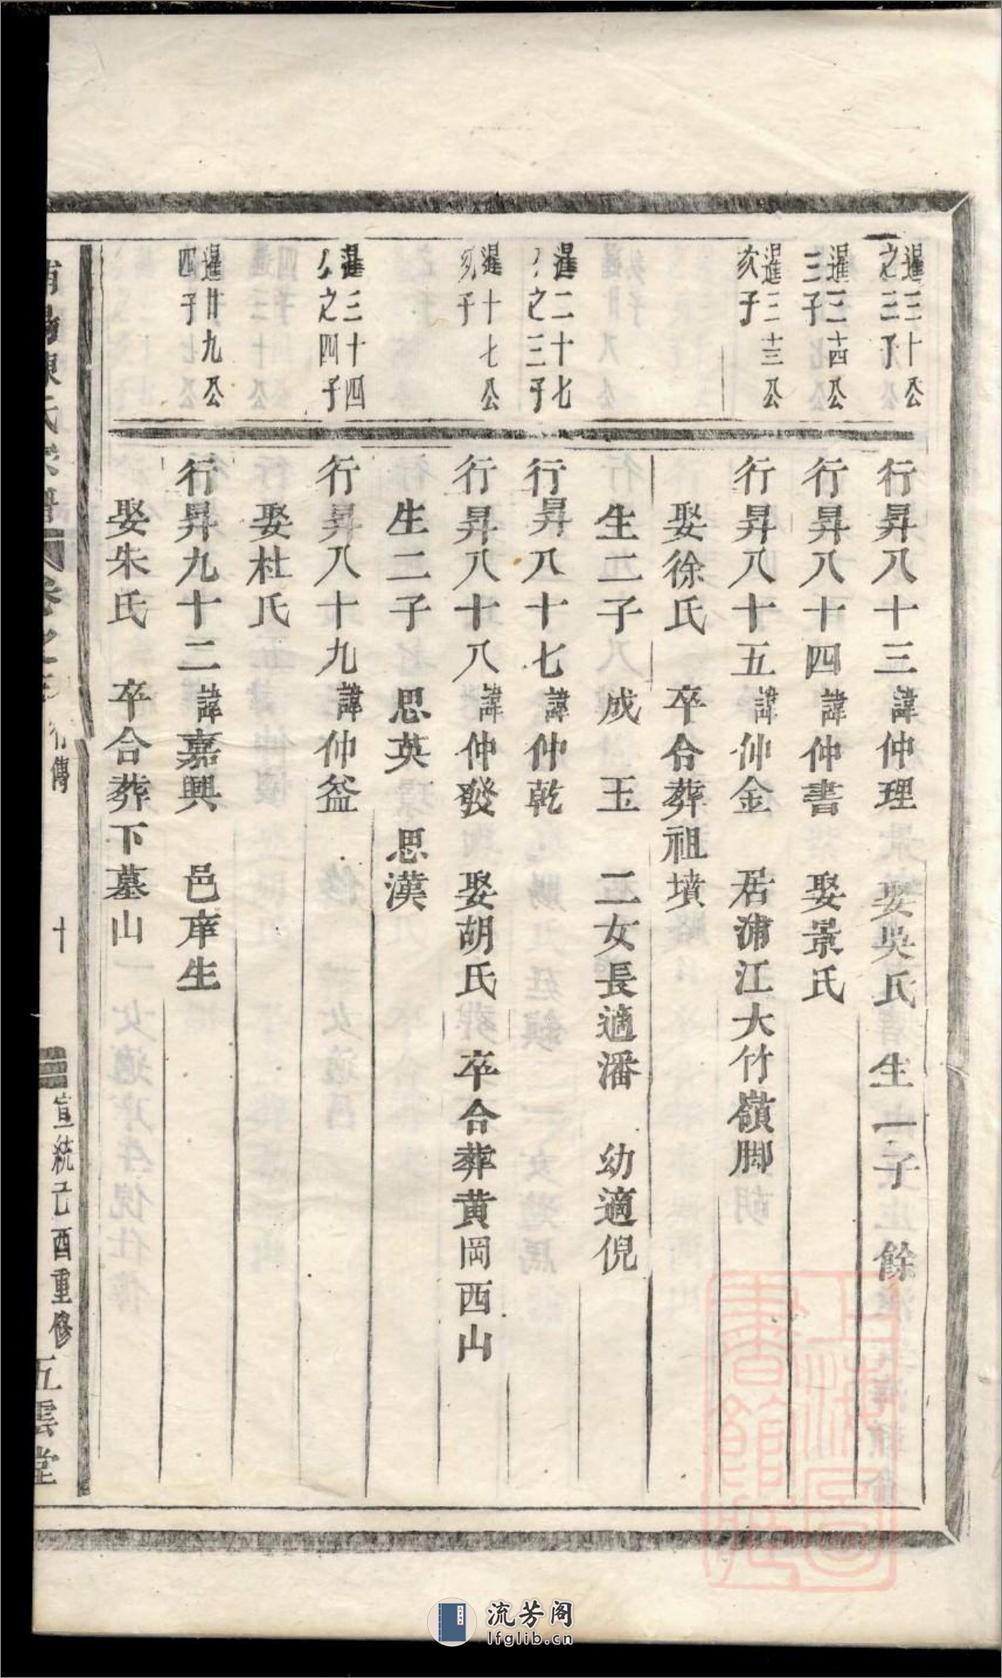 暹三十公之三子
行昇八十三諱仲理 娶吳氏 生一子 餘
暹三十四公三子
行昇八十四諱仲書 娶景氏
暹三十三公亥子
行昇八十五諱仲金 居浦江大竹嶺脚
娶徐氏 卒合葬祖墳
生二子 成 玉 二女長適潘 幼適倪
暹二十七公之三子
行昇八十七諱仲乾
暹十七公亥子
行昇八十八諱仲發 娶胡氏 卒合葬黃岡西山
生二子 思英 思漢
暹三十四公之四子
行昇八十九諱仲益
娶杜氏
暹廿九公四子
行昇九十二諱嘉興 邑庠生
娶朱氏 卒合葬下墓山
陳氏宗譜 卷之 行傳 十 宣統己酉重修 五雲堂
上海圖書館藏
流芳阁
lfglib.cn